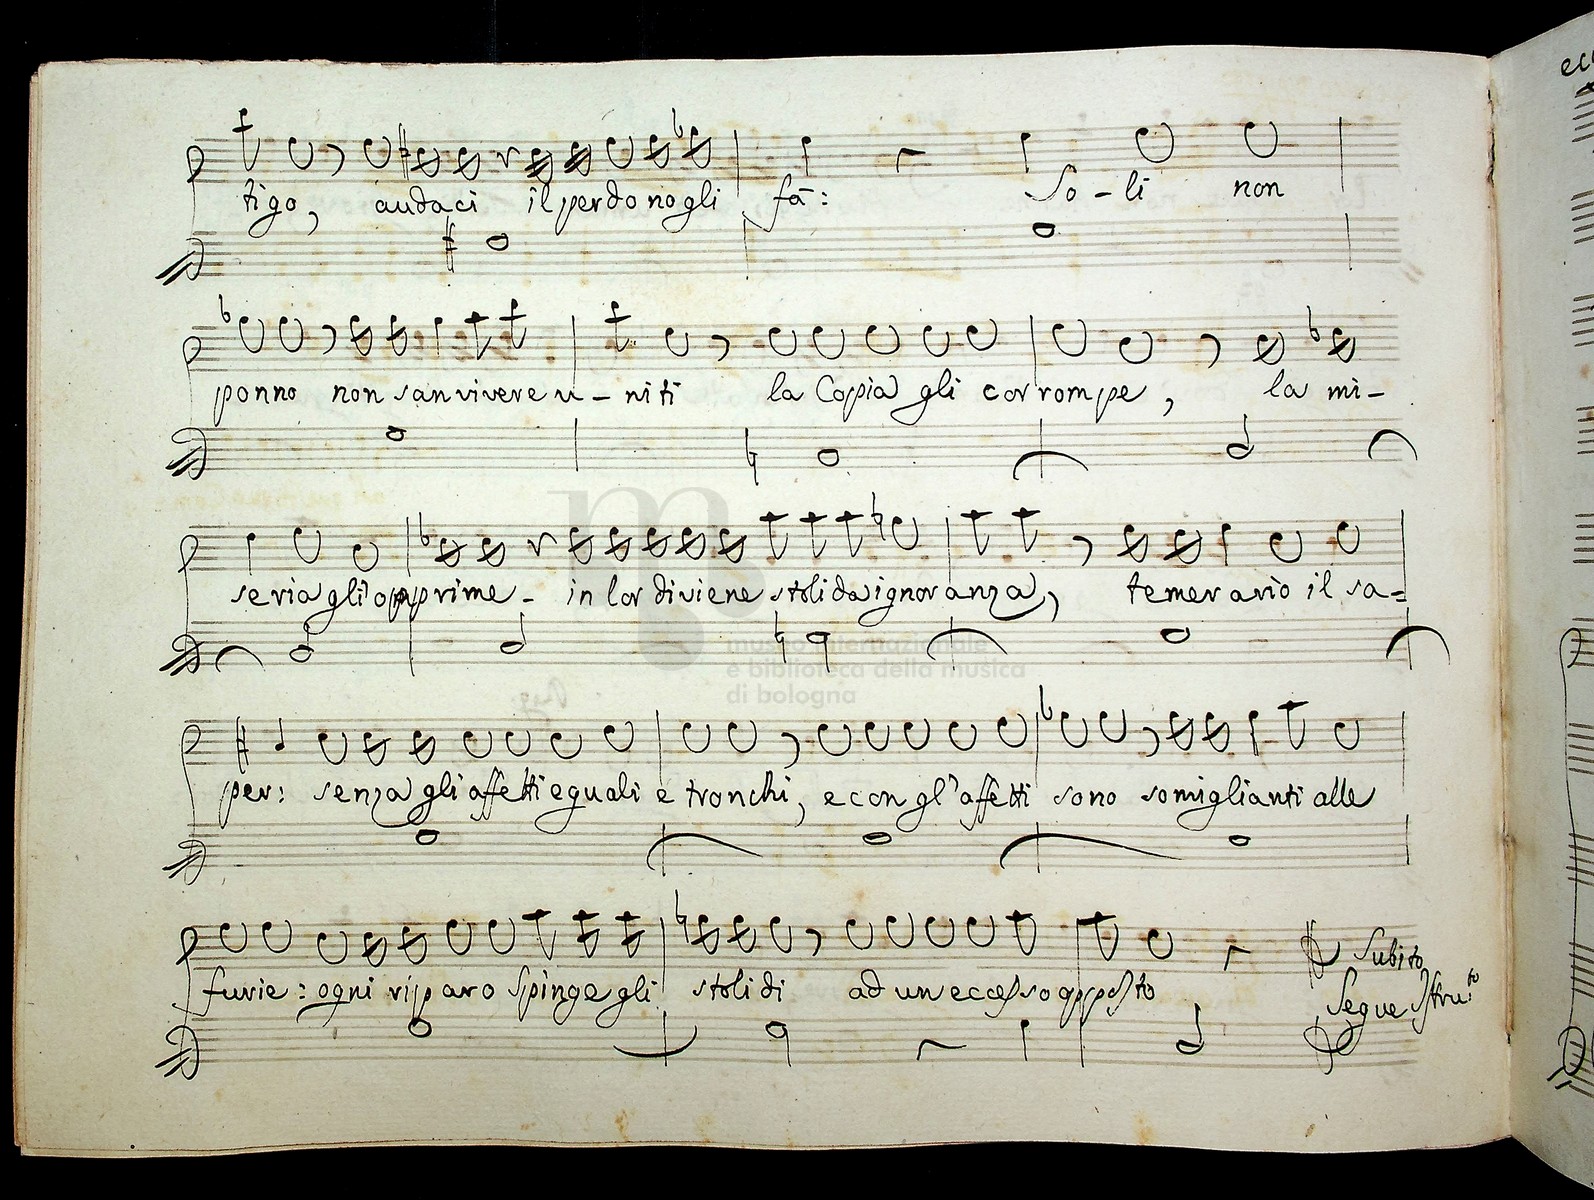 tigo, audaci il perdono gli fà: So-li non
ponno non san vivere u-niti la Copia gli corrompe, la mi-
seria gli opprime- in lor diviene stolida ignoranza, temerario il sa=
per: senza gli affetti eguali e tronchi, e con gl'affetti sono somiglianti alle
furie: ogni riparo spinge gli stolidi ad un eccesso opposto
Subito
Segue
museo internazionale
e biblioteca della musica
di bologna